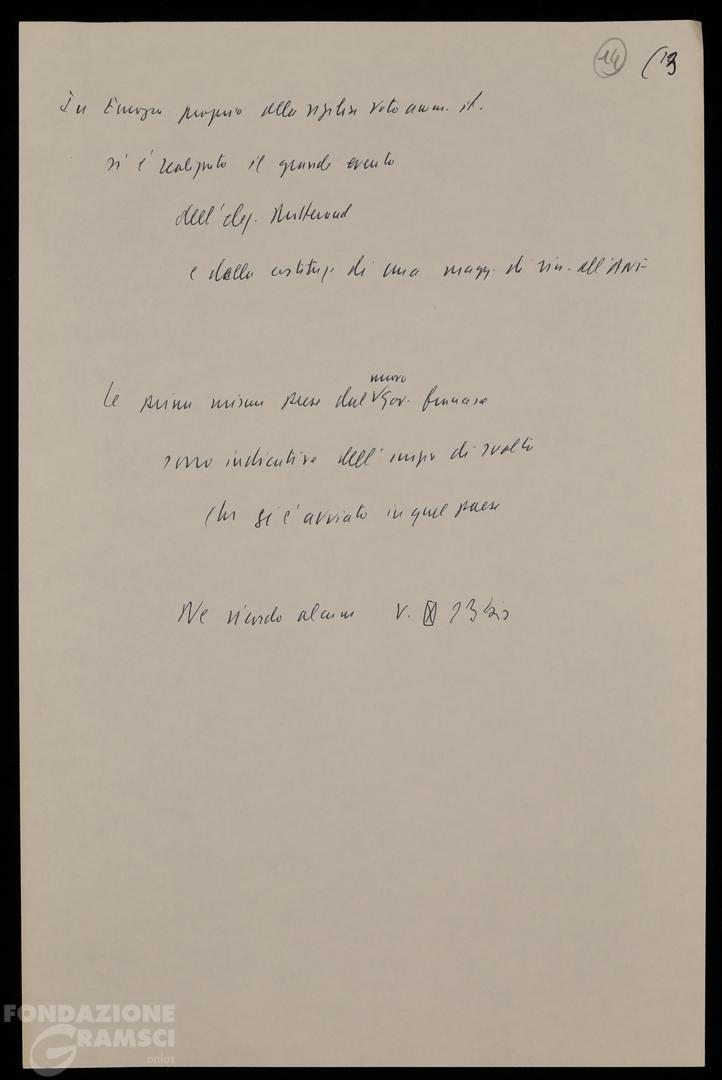 14 (13
In Europa proprio alla vigilia voto amm. it.
si è realizzato il grande evento
dell'elez. Mitterand
e della costituz. di una magg. di sin. all'
nuovo
Le prime misure prese dal V Gov. francese
sono indicative dell' di svolta
che si è avviato in quel paese
Ne ricordo alcune V. 13 bis
FONDAZIONE
GRAMSCI
onlus